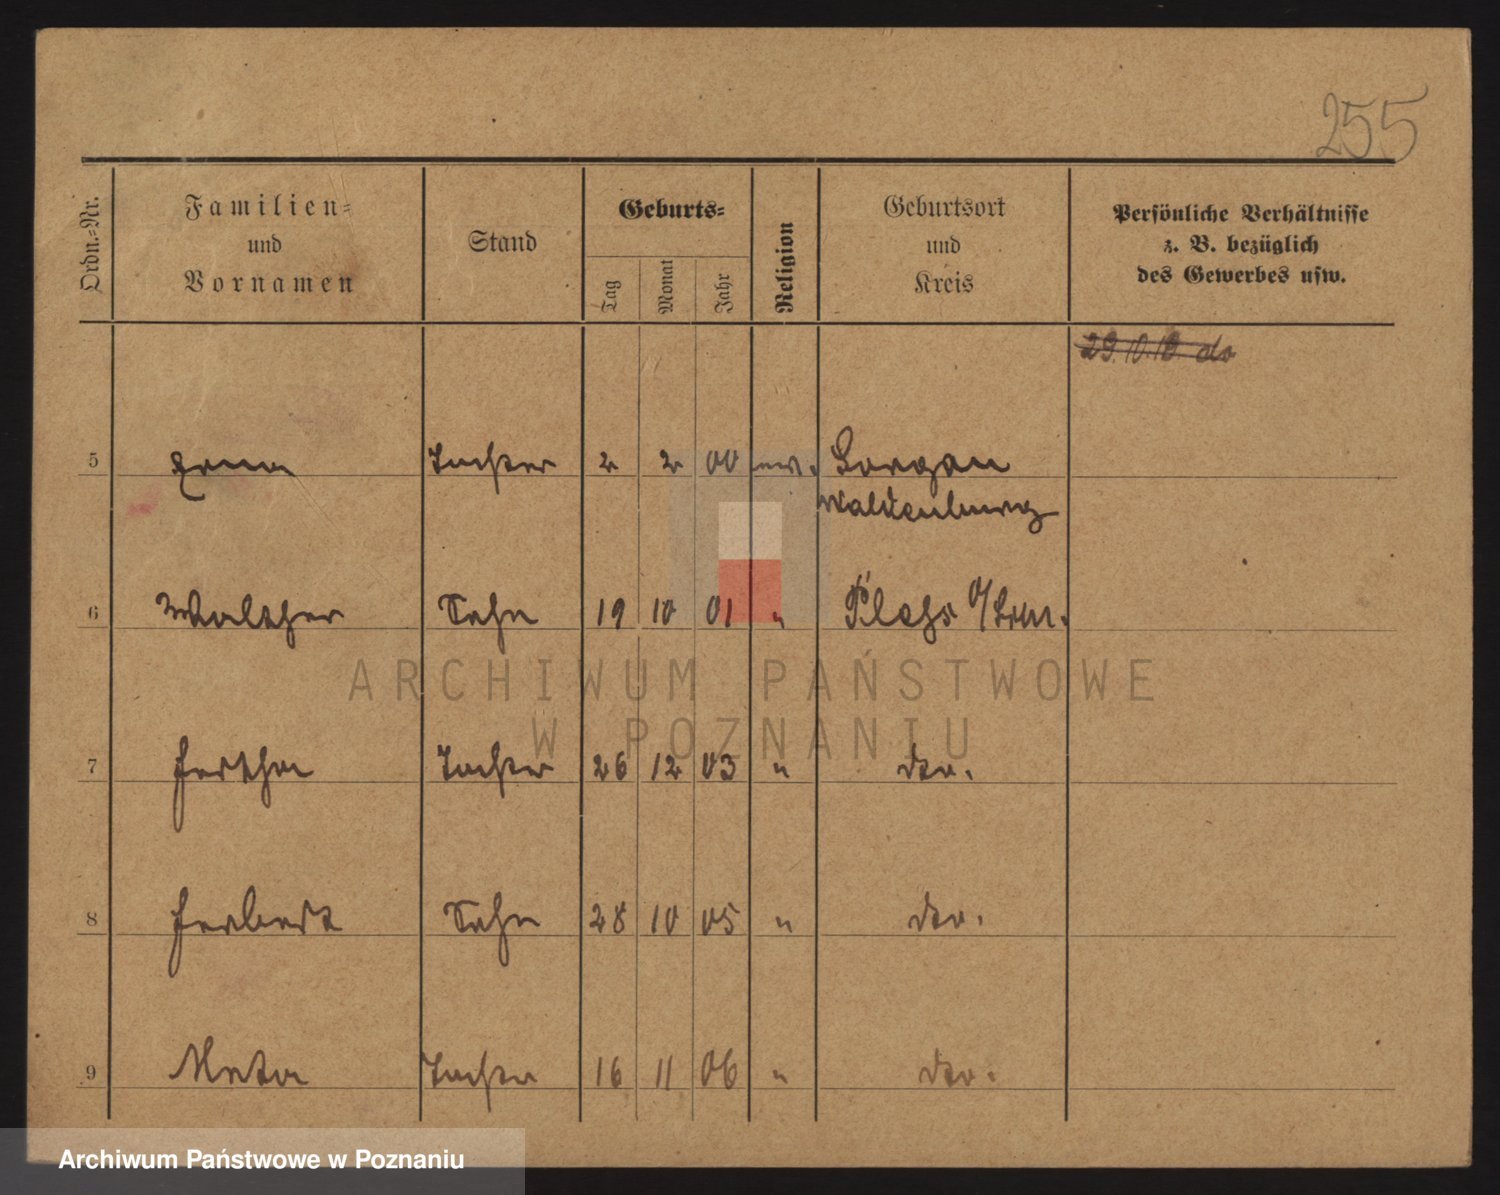 255
Ordn.-Nr.
Familien-
und
Vornamen
Stand
Geburts-
Tag
Monat
Jahr
Religion
Geburtsort
und
Kreis
Persönliche Verhältnisse
z. B. bezüglich
des Gewerbes usw.
29.10.18 do
5 Erna Tochter 2 2 00 ev. Sorgau
Waldenburg
6 Walther Sohn 19 10 01 "
7 Hertha Tochter 26 12 03 " dto.
8 Herbert Sohn 28 10 05 " dto.
9 Meta Tochter 16 11 06 " dto.
ARCHIWUM PAŃSTWOWE
W POZNANIU
Archiwum Państwowe w Poznaniu